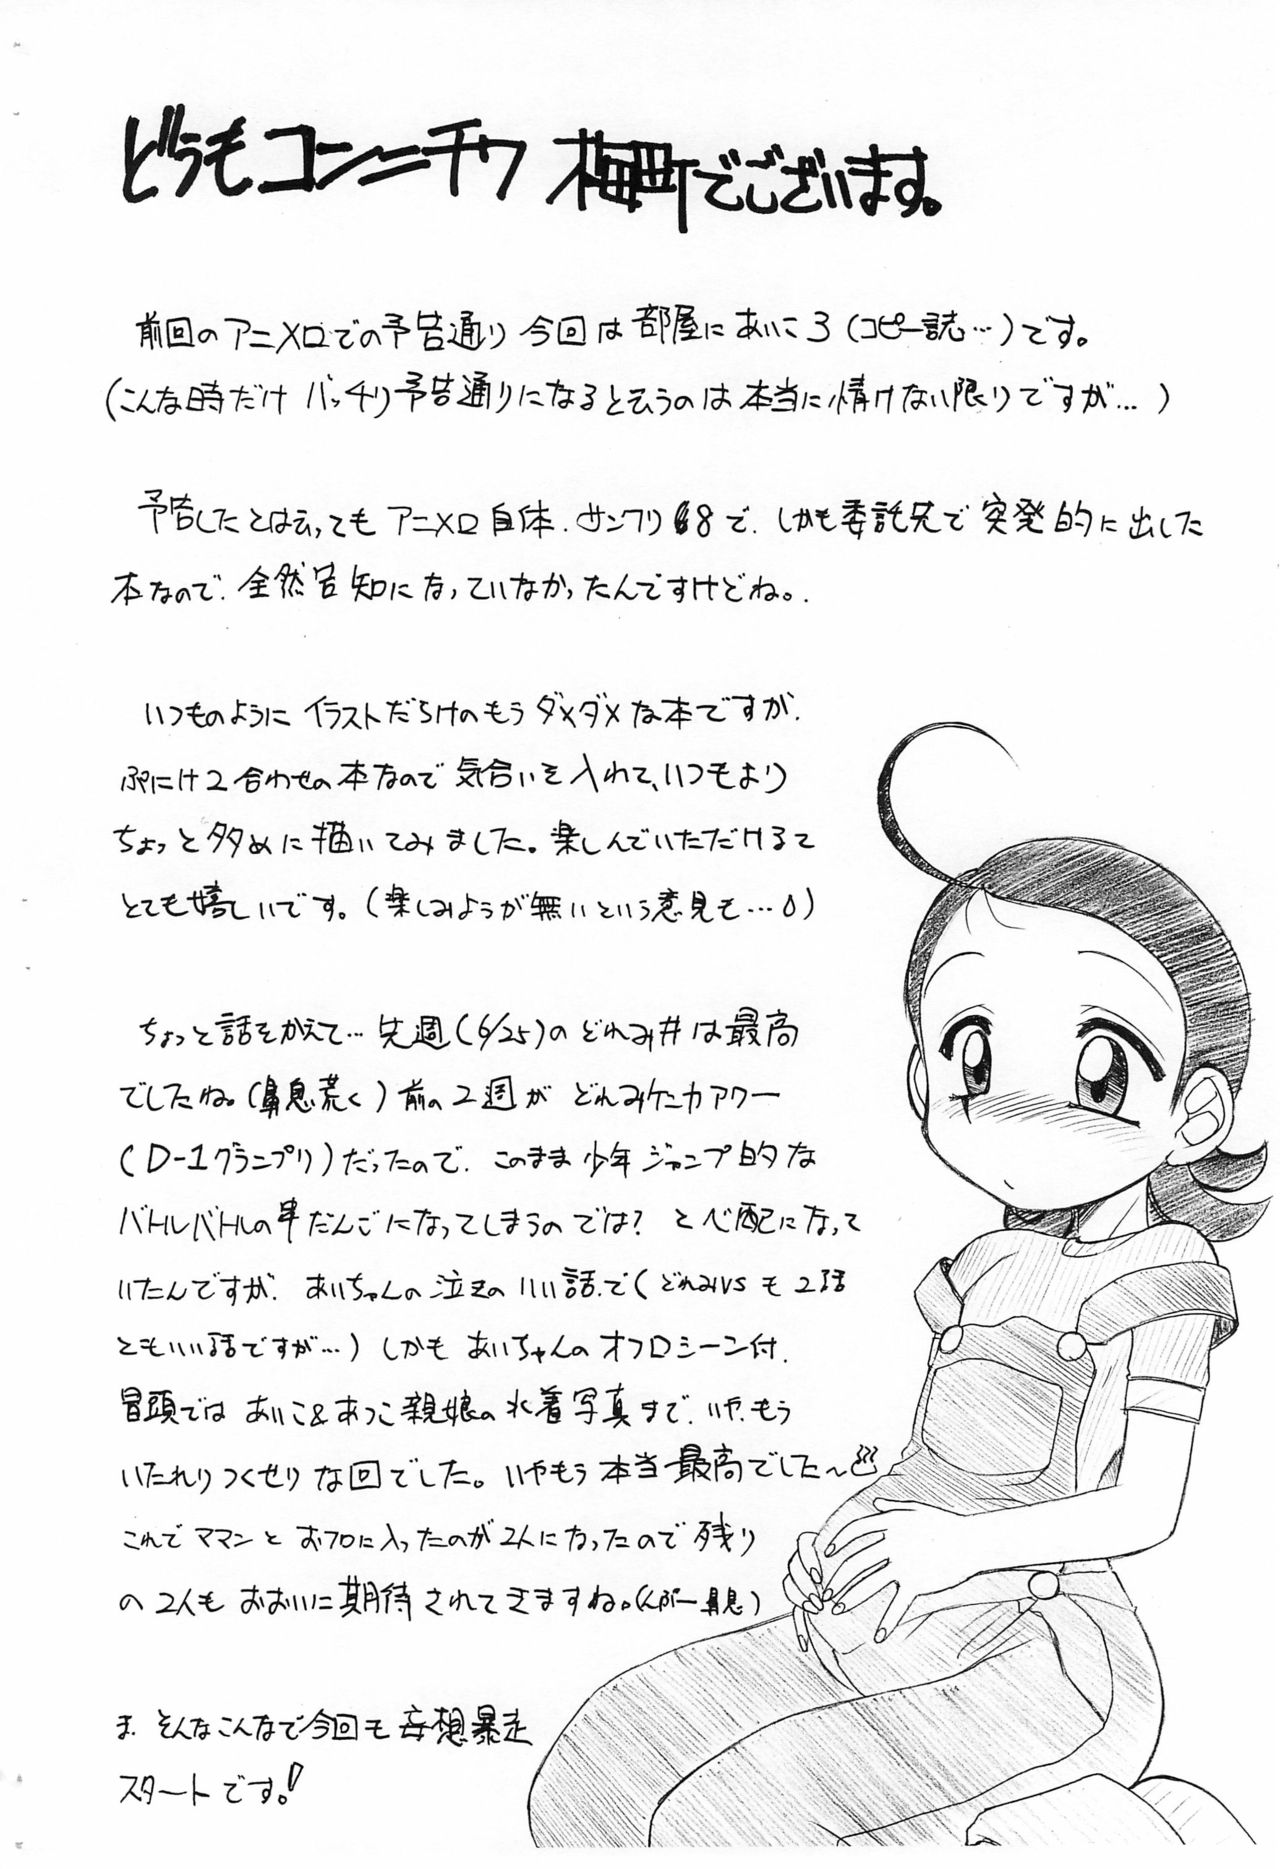 どうもコンニチワ 梅町でございます。
前回のアニメロでの予告通り今回は部屋にあいこ3(コピー誌…)です。
(こんな時だけバッチリ予告通りになると云うのは本当に情けない限りですが…)
予告したとは云ってもアニメロ自体、サンクリ8で、しかも委託先で突発的に出した
本なので、全然告知になっていなかったんですけどね。
いつものようにイラストだらけのもうダメダメな本ですが、
ぷにけ2合わせの本なので気合いを入れて、いつもより
ちょっと多めに描いてみました。楽しんでいただけると
とても嬉しいです。(楽しみようが無いという意見も…)
ちょっと話をかえて…先週(6/25)のどれみ#は最高
でしたね。(鼻息荒く)前の2週がどれみケニカアワー
(D-1グランプリ)だったので、このまま少年ジャンプ的な
バトルバトルの串だんごになってしまうのでは?と心配になって
いたんですが、あいちゃんの泣きのいい話で(どれみVSも2話
ともいい話ですが…)しかもあいちゃんのオフロシーン付、
冒頭ではあいこ&あつこ親娘の水着写真まで、いや、もう
いたれりつくせりな回でした。いやもう本当最高でした〜
これでママンとおフロに入ったのが2人になったので残り
の2人もおおいに期待されてきますね。(んぷー鼻息)
ま、そんなこんなで今回も妄想暴走
スタートです!